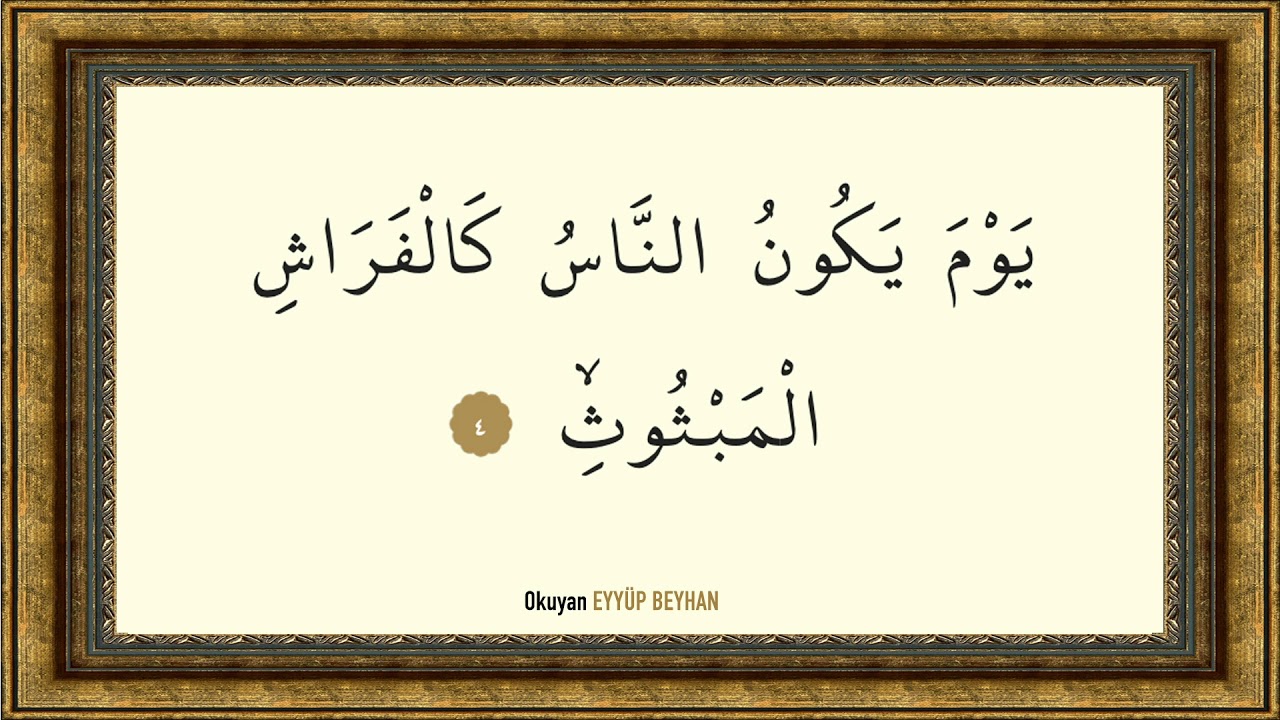 يَوْمَ يَكُونُ النَّاسُ كَالْفَرَاشِ
الْمَبْثُوثِۙ ٤
Okuyan EYYÜP BEYHAN